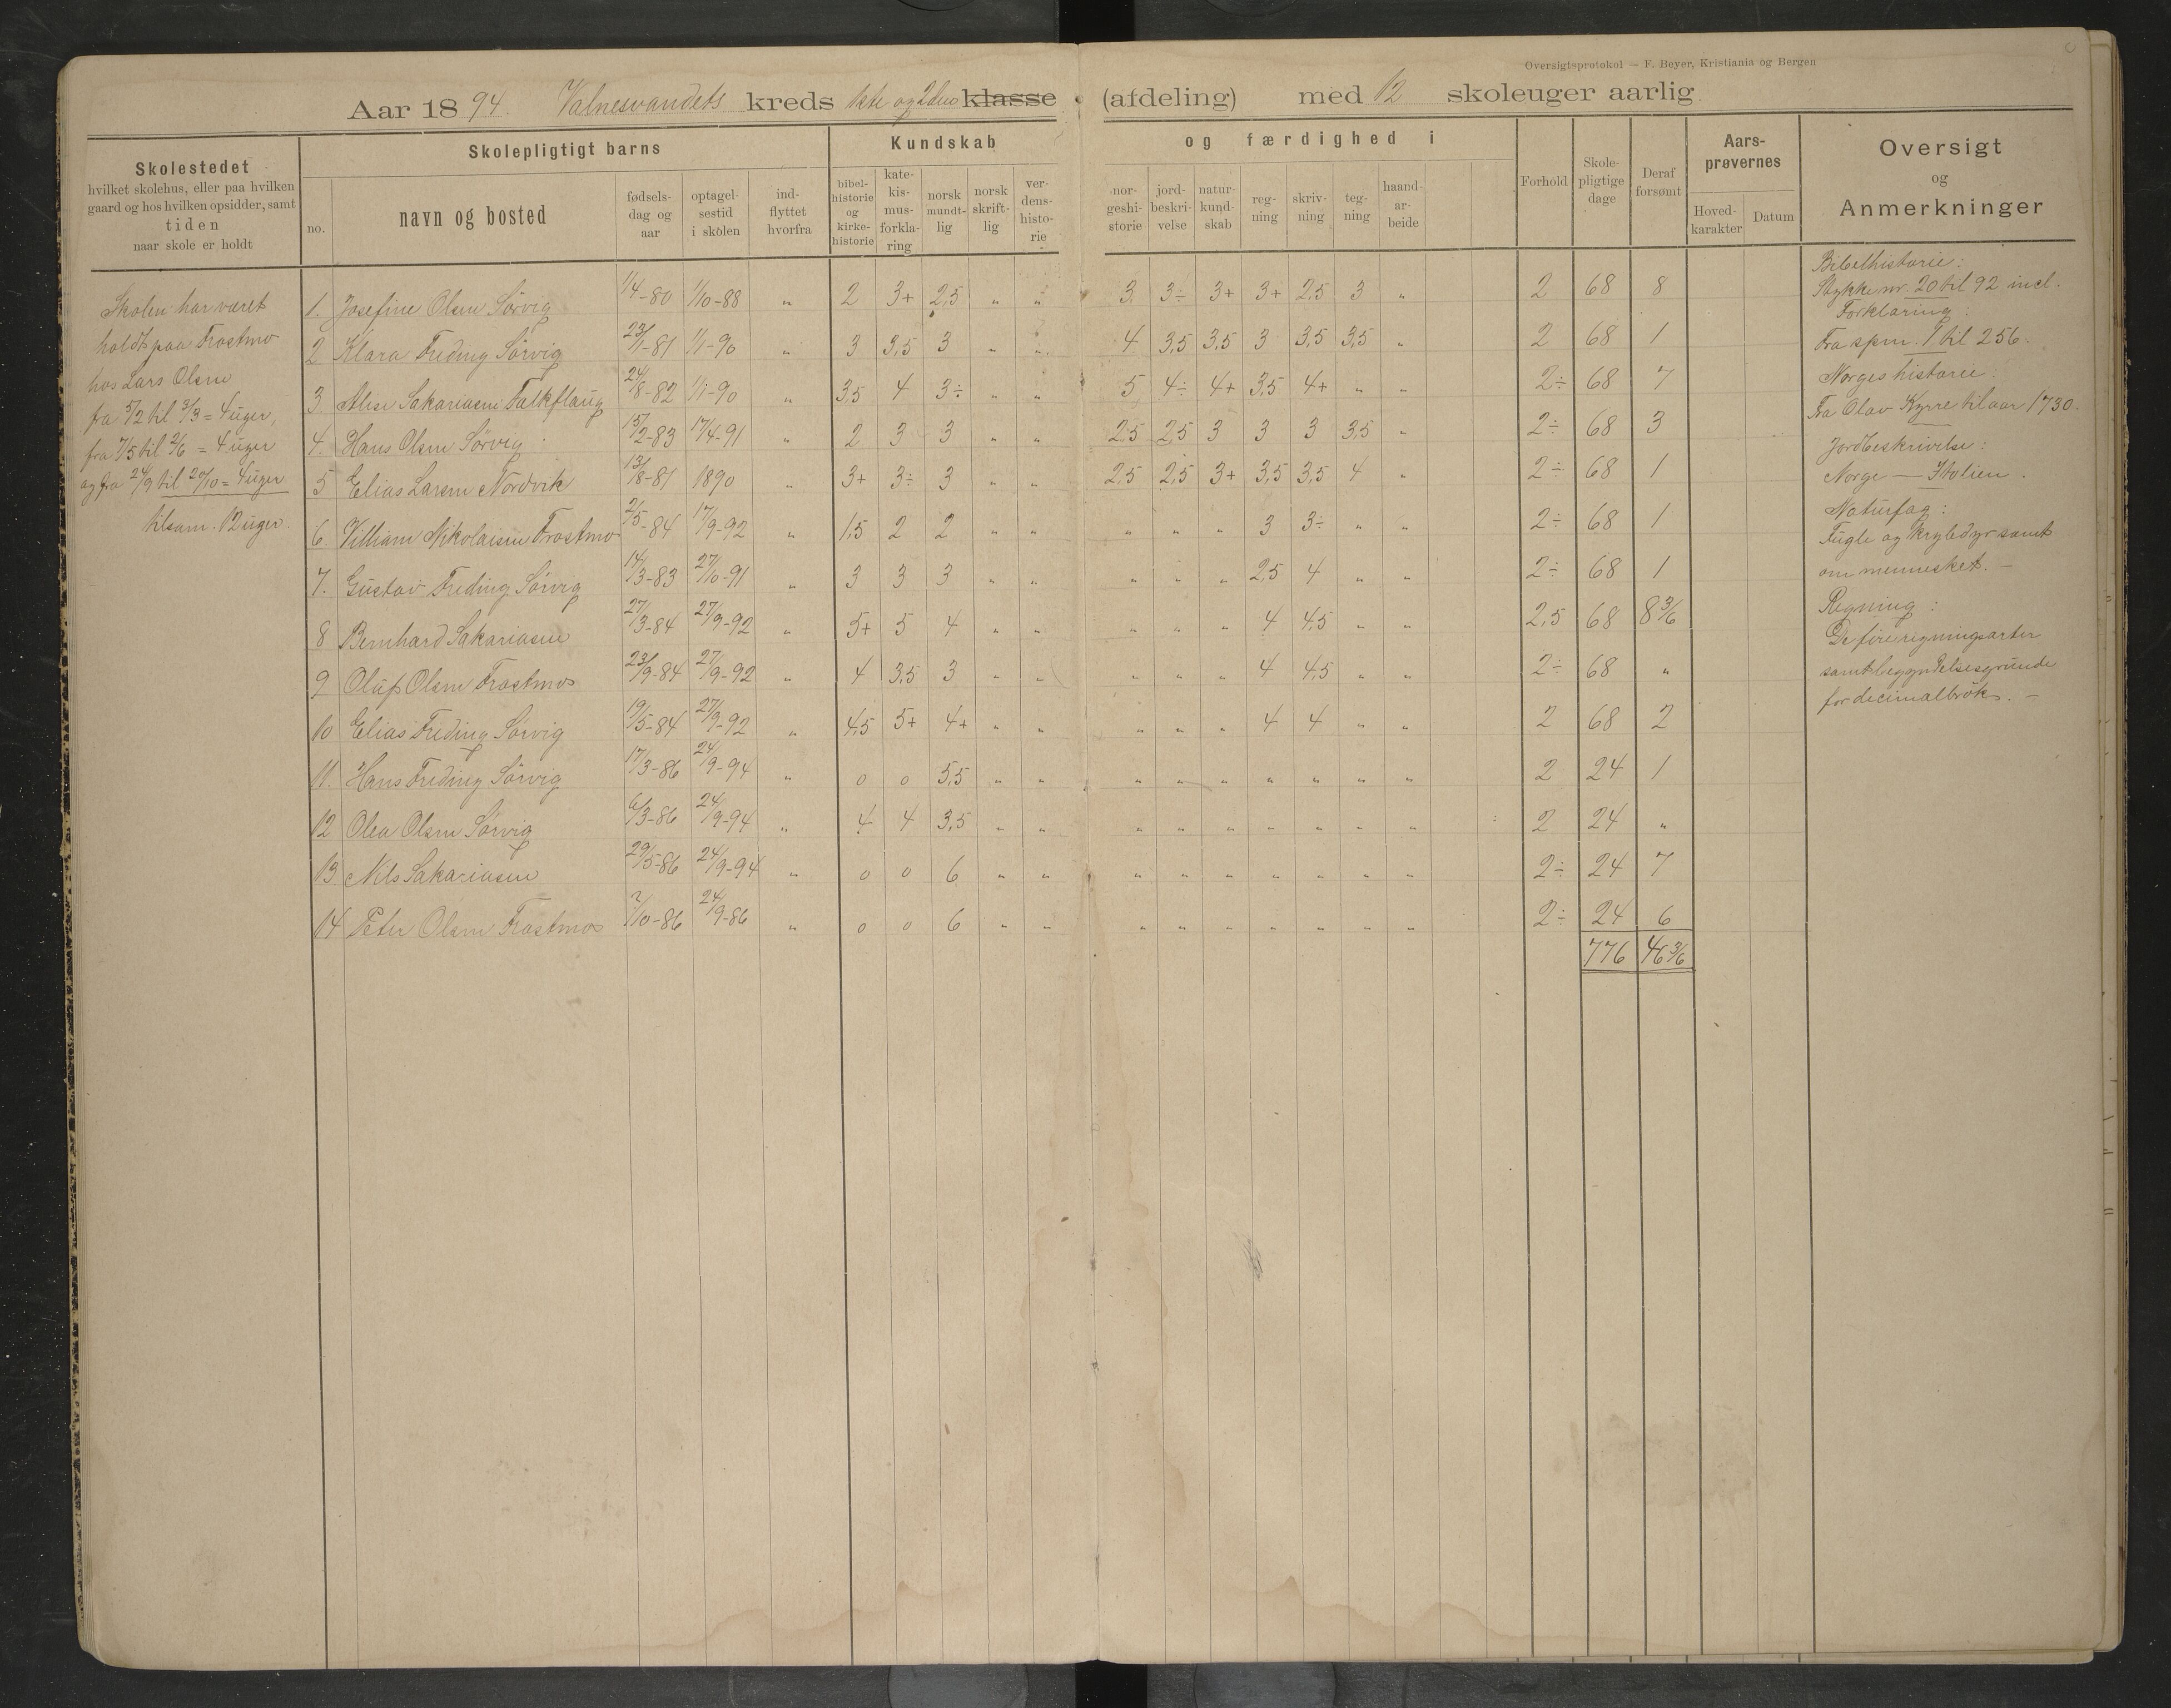 Oversigtsprotokol — F. Beyer, Kristiania og Bergen
Aar 1894. Valnesvandets kreds 1ste og 2den klasse (afdeling) med 12 skoleuger aarlig
Skolestedet
hvilket skolehus, eller paa hvilken
gaard og hos hvilken opsidder, samt
tiden
naar skole er holdt
Skolepligtigt barns
no.
navn og bosted
fødsels-
dag og
aar
optagel-
sestid
i skolen
ind-
flyttet
hvorfra
Kundskab og færdighed i
bibel-
historie
og
kirke-
historie
kate-
kis-
mus-
forkla-
ring
norsk
mundt-
lig
norsk
skrift-
lig
ver-
dens-
histo-
rie
nor-
geshi-
storie
jord-
beskri-
velse
natur-
kund-
skab
reg-
ning
skriv-
ning
teg-
ning
haand-
ar-
beide
Forhold
Skole-
pligtige
dage
Deraf
forsømt
Aars-
prøvernes
Hoved-
karakter
Datum
Oversigt
og
Anmerkninger
Skolen har været
holdt paa Frostmo
hos Lars Olsen
fra 5/2 til 3/3 = 4 uger,
fra 7/5 til 2/6 = 4 uger
og fra 24/9 til 20/10 = 4 uger
tilsam. 12 uger.
1. Josefine Olsen Sørvig 1/4-80 1/10-88 " 2 3+ 2,5 " " 3 3÷ 3+ 3+ 2,5 3 " 2 68 8
2 Klara Freding Sørvig 23/1-81 1/1-90 " 3 3,5 3 " " 4 3,5 3,5 3 3,5 3,5 " 2 68 1
3 Alise Sakariasen Falkflaug 24/8-82 1/1-90 " 3,5 4 3÷ " " 5 4÷ 4+ 3,5 4+ " " 2÷ 68 7
4. Hans Olsen Sørvig 15/2-83 17/4-91 " 2 3 3 " " 2,5 2,5 3 3 3 3,5 " 2÷ 68 3
5 Elias Larsen Nordvik 13/8-81 1890 " 3+ 3÷ 3 " " 2,5 2,5 3+ 3,5 3,5 4 " 2÷ 68 1
6. Villiam Nikolaisen Frostmo 2/5-84 17/9-92 " 1,5 2 2 " " " " " 3 3÷ " " 2÷ 68 1
7. Gustav Freding Sørvig 14/3-83 27/10-91 " 3 3 3 " " " " " 2,5 4 " " 2÷ 68 1
8 Bernhard Sakariasen 27/3-84 27/9-92 " 5+ 5 4 " " " " " 4 4,5 " " 2,5 68 8 3/6
9 Oluf Olsen Frostmo 23/9-84 27/9-92 " 4 3,5 3 " " " " " 4 4,5 " " 2÷ 68 "
10 Elias Freding Sørvig 19/5-84 27/9-92 " 4,5 5+ 4+ " " " " " 4 4 " " 2 68 2
11. Hans Freding Sørvig 17/3-86 24/9-94 " 0 0 5,5 " " " " " " " " " 2 24 1
12 Olea Olsen Sørvig 6/3-86 24/9-94 " 4 4 3,5 " " " " " " " " " 2 24 "
13. Nils Sakariasen 29/5-86 24/9-94 " 0 0 6 " " " " " " " " " 2÷ 24 7
14 Peter Olsen Frostmo 2/10-86 24/9-86 " 0 0 6 " " " " " " " " " 2÷ 24 6
776 46 3/6
Bibelhistorie:
Stykke nr. 20 til 92 incl.
Forklaring:
Fra spm. 1 til 256.
Norges historie:
Fra Olav Kyrre til aar 1730.
Jordbeskrivelse:
Norge — Italien.
Naturfag:
Fugle og krybdyr samt
om mennesket. —
Regning:
De fire regningsarter
samt begyndelsesgrunde
for decimalbrøk. —